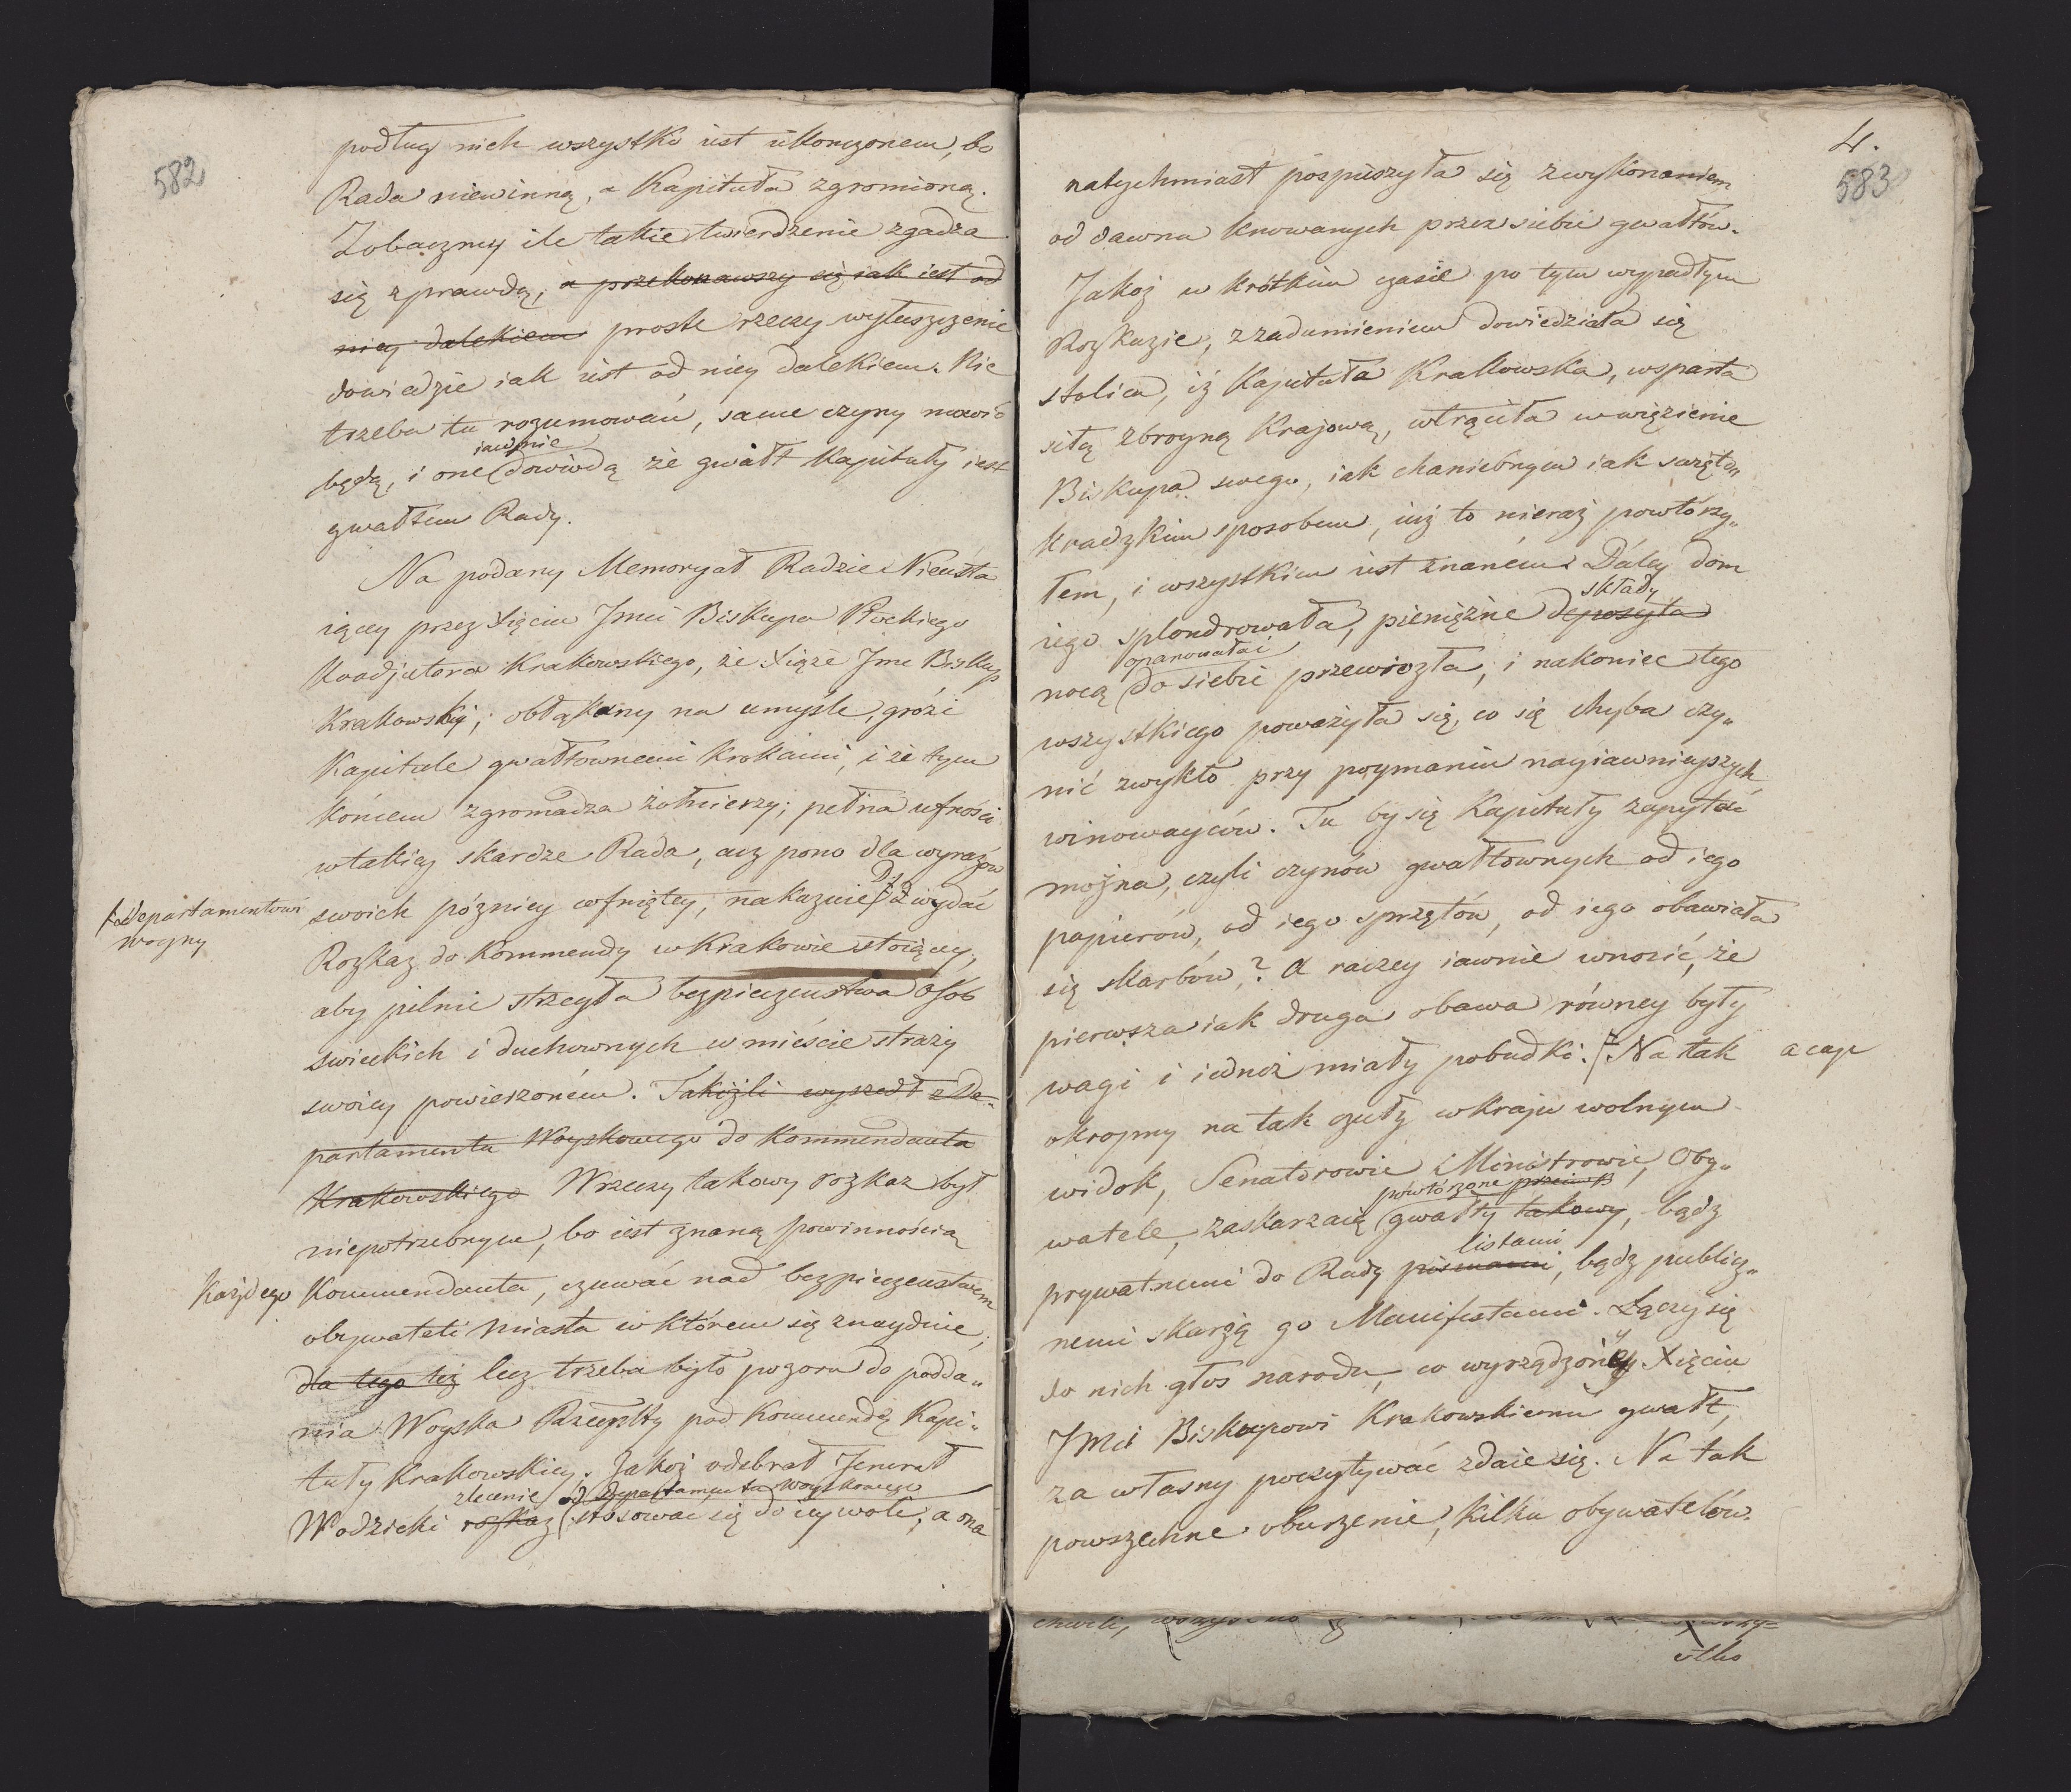 582
podług nich wszystko iest ukonczonem, bo
Rada niewinną, a Kapituła zgromioną.
Zobaczmy ile takie twierdzenie zgadza
się z prawdą, a przekonawszy się iak iest od
niey dalekiem proste rzeczy wyłuszczenie
dowiedzie iak iest od niey dalekiem. Nie
trzeba tu rozumowań, same czyny mowić
iawnie
będą, i one dowiodą że gwałt Kapituły iest
gwałtem Rady.
Na podany Memoryał Radzie Nieusta
iącey przez Xięcia Jmci Biskupa Płockiego
Koadjutora Krakowskiego, że Xiąże Jmc Biskup
Krakowski, obłąkany na umyśle, grózi
Kapitule gwałtownemi krokami, i że tym
końcem zgromadza żołnierzy; pełna ufności
w takiey skardze Rada, acz pono dla wyrazów
swoich pózniey cofniętey, nakazuie wydać
Departamentowi
woyny
Rozkaz do Kommendy w Krakowie stoiącey,
aby pilnie strzegła bezpieczenstwa Osób
swieckich i duchownych w mieście straży
swoiey powierzonem. Jakiżli wyszedł z De-
partamentu Woyskowego do Kommendanta
Krakowskiego Wrzeczy takowy rozkaz był
niepotrzebnym, bo iest znaną powinnością
Każdego Kommendanta, czuwać nad bezpieczenstwem
obywateli Miasta w którem się znayduie;
dla tego też lecz trzeba było pozoru do podda„
nia Woyska Rzeczpltey pod Kommendę Kapi-
tuły Krakowskiey. Jakoż odebrał Jenerał
zlecenie od Departamentu Woyskowego
Wodzicki rozkaz stosować się do iey woli, a ona
4.
583
natychmiast pospieszyła się z wykonaniem
od dawna knowanych przez siebie gwałtów.
Jakoż w krótkim czasie po tym wypadłym
Rozkazie, z zadumieniem dowiedziała się
stolica, iż Kapituła Krakowska, wsparta
siłą zbroyną Krajową, wtrąciła w więzienie
Biskupa swego, iak chaniebnym iak święto„
kradzkim sposobem, iuż to nieraz powtórzy„
łem, i wszystkim iest znanem. Dáley dom
składy
iego splondrowała, pieniężne deposyta
opanowała i
nocą do siebie przewiozła, i nakoniec tego
wszystkiego poważyła się, co się chyba czy„
nić zwykło przy poymaniu nayiawnieyszych
winowayców. Tu by się Kapituły zapytać
można, czyli czynów gwałtownych od iego
papierów, od iego sprzętów, od iego obawiała
się skarbów? A raczey iawnie wnosić, że
pierwsza iak druga obawa równey były
wagi i iedneż miały pobudki. Na tak
a cap
okropny na tak czuły w kraju wolnym
widok, Senatorowie Ministrowie, Oby„
powtórzone
watele, zaskarżaią gwałty takowy, bądz
listami
prywatnemi do Rady pismami, bądz publicz„
nemi skarżą go Manifestami. Łączy się
do nich głos narodu, co wyrządzony Xięciu
JMci Biskupowi Krakowskiemu gwałt,
za własny poczytywać zdaie się. Na tak
powszechne oburzenie, kilku obywatelów
chwili,
stko